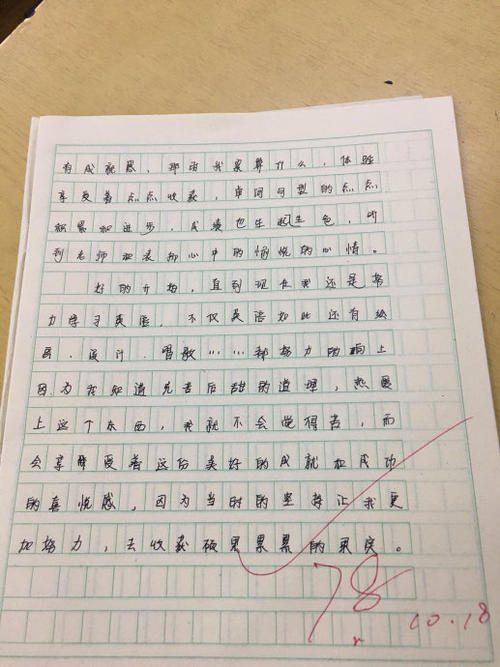 有成就感，那点我累算什么，体验
享受着点点收获，审问句型的点点
积累和进步，成绩也生起生色，听
到老师和表抑心中的愉悦的心情。
好的开始，直到现在我还是努
力学习英语，不仅英语如此还有绘
画、设计、唱歌……都努力的向上
因为我知道先苦后甜的道理，热爱
上这个东西，我就不会觉得苦，而
会享受着这份美好的成就和成功
的喜悦感，因为当时的坚持让我更
加努力，去收获硕果累累的果实。
78
10.18